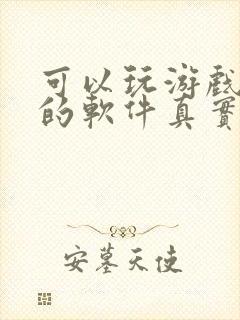 可以玩游戲
的軟件真實
安墓天使